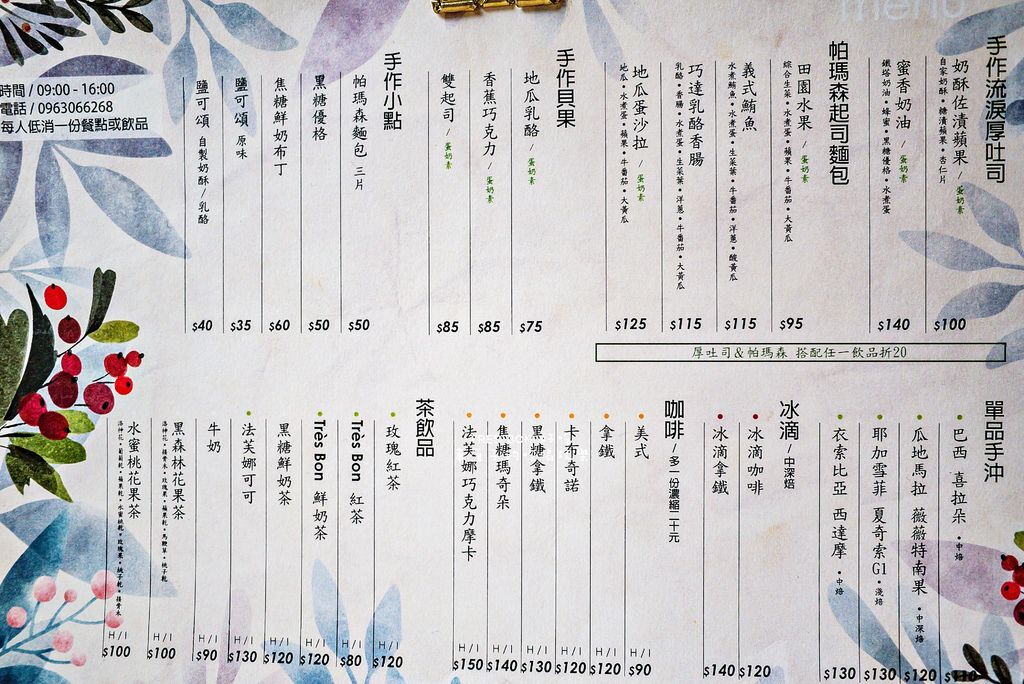 menu
手作流淚厚吐司
奶酥佐漬蘋果 / 蛋奶素 $100
自家奶酥•糖漬蘋果•杏仁片
蜜香奶油 / 蛋奶素 $140
鐵塔奶油•蜂蜜•黑糖優格•水煮蛋
帕瑪森起司麵包
田園水果 / 蛋奶素 $95
綜合生菜•水煮蛋•蘋果•牛番茄•大黃瓜
義式鮪魚 $115
水煮鮪魚•水煮蛋•生菜葉•牛番茄•洋蔥•酸黃瓜
巧達乳酪香腸 $115
乳酪•香腸•水煮蛋•生菜葉•洋蔥•牛番茄•大黃瓜
地瓜蛋沙拉 / 蛋奶素 $125
地瓜•水煮蛋•蘋果•牛番茄•大黃瓜
手作貝果
地瓜乳酪 / 蛋奶素 $75
香蕉巧克力 / 蛋奶素 $85
雙起司 / 蛋奶素 $85
手作小點
帕瑪森麵包 三片 $50
黑糖優格 $50
焦糖鮮奶布丁 $60
鹽可頌 原味 $35
鹽可頌 自製奶酥 / 乳酪 $40
時間 / 09:00 - 16:00
電話 / 0963066268
每人低消一份餐點或飲品
厚吐司＆帕瑪森 搭配任一飲品折20
單品手沖
巴西 喜拉朵 •中焙 $110
瓜地馬拉 薇薇特南果 •中深焙 $120
耶加雪菲 夏奇索G1 •淺焙 $130
衣索比亞 西達摩 •中焙 $130
冰滴 / 中深焙
冰滴咖啡 $120
冰滴拿鐵 $140
咖啡 / 多一份濃縮二十元
美式 H / I $90
拿鐵 H / I $120
卡布奇諾 H / I $120
黑糖拿鐵 H / I $130
焦糖瑪奇朵 H / I $140
法芙娜巧克力摩卡 H / I $150
茶飲品
玫瑰紅茶 H / I $120
Très Bon 紅茶 H / I $80
Très Bon 鮮奶茶 H / I $120
黑糖鮮奶茶 H / I $120
法芙娜可可 H / I $130
牛奶 H / I $90
黑森林花果茶 H / I $100
洛神花•葡萄乾•玫瑰果•蘋果乾•馬鞭草•桃子乾
水蜜桃花果茶 H / I $100
洛神花•葡萄乾•蘋果乾•水蜜桃乾•玫瑰果•桃子乾•接骨木